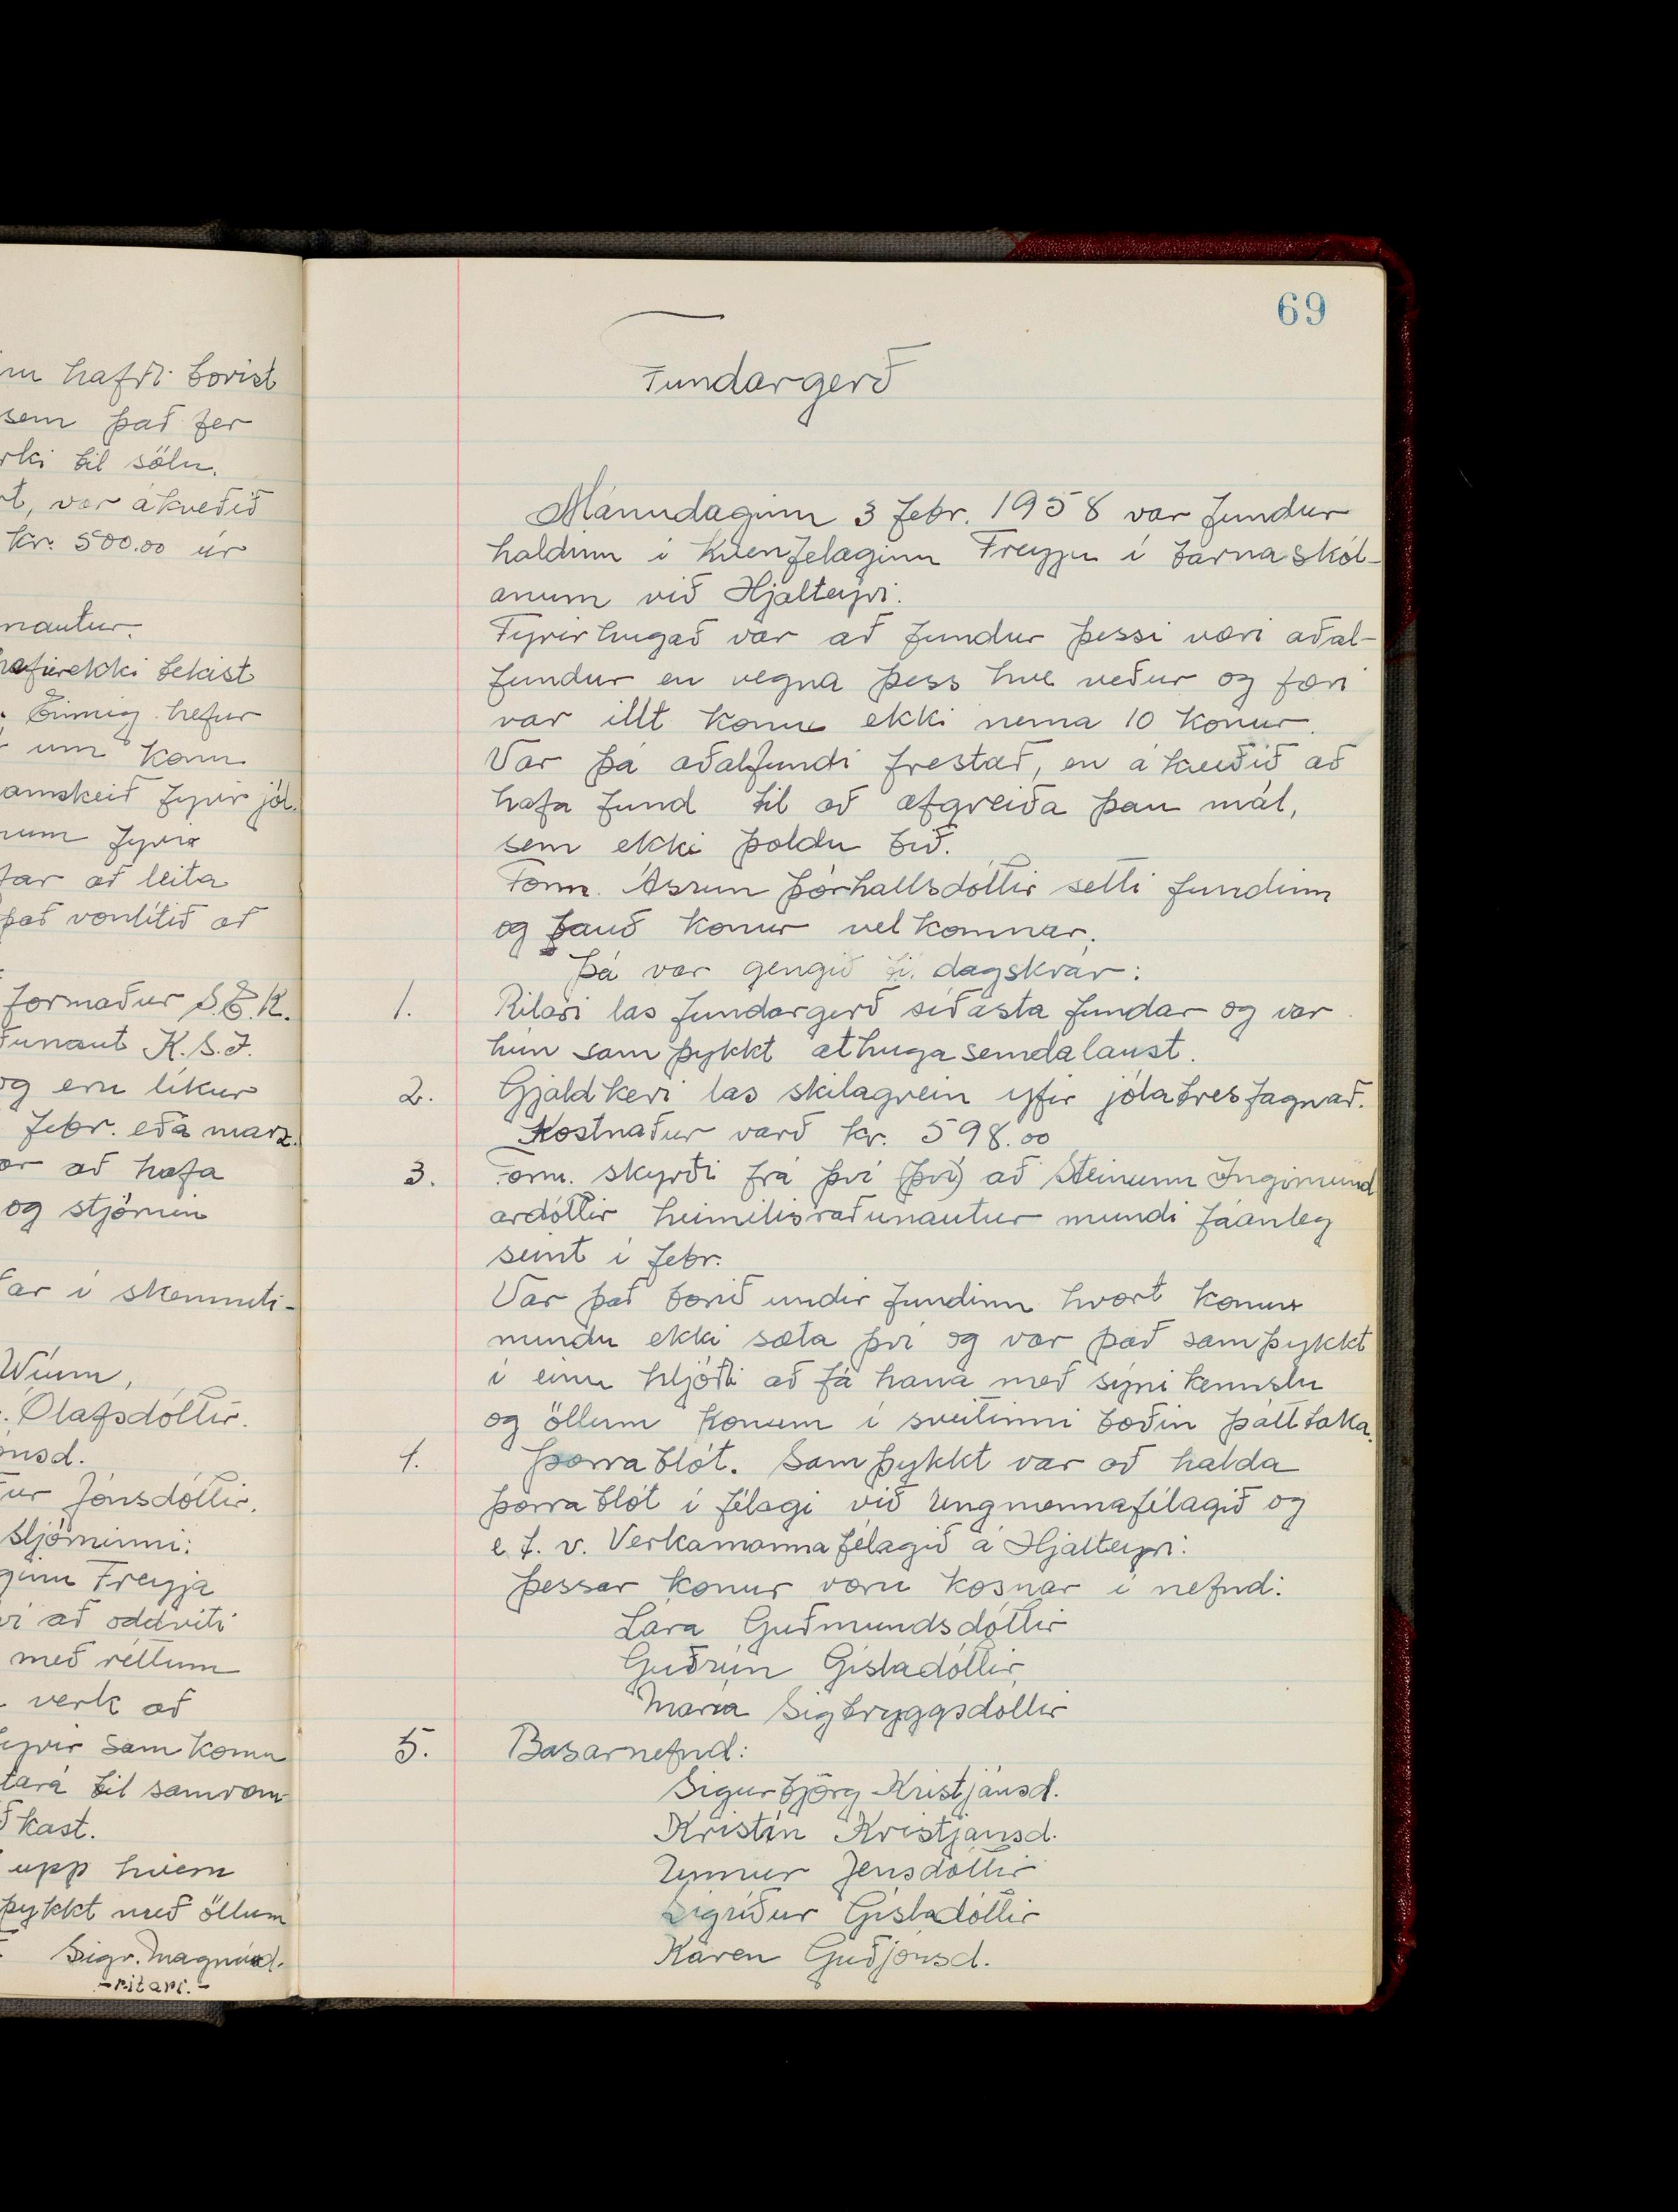 m hafði borist
sem það fer
rki til sölu.
t, var ákveðið
kr. 500.00 úr
nautur.
hafi ekki tekist
. Einnig hefur
um kom
amskeið fyrir jól.
num fyrir
far að leita
það vonlítið að
formaður S.E.K.
unaut K.S.I.
og eru líkur
febr. eða marz.
or að hafa
og stjórnin
ar í skemmti-
Winm,
. Ólafsdóttir.
onsd.
ur Jónsdóttir.
stjórninni:
ginu Freyja
vi að oddviti
með réttum
verk að
fyrir samkomu
tara til samvom
kast.
upp hvem
þykkt með öllum
Sigr. Magnúsd.
-ritari.-
69
Fundargerð
Mánudaginn 3 febr. 1958 var fundur
haldinn í Kvenfelaginu Freyju í barnaskól-
anum við Hjalteyri.
Fyrirhugað var að fundur þessi væri aðal-
fundur en vegna þess hve veður og færi
var illt komu ekki nema 10 konur.
Var þá aðalfundi frestað, en ákveðið að
hafa fund til að afgreiða þau mál,
sem ekki þoldu bið.
Form. Ásrún Þórhallsdóttir setti fundinn
og bauð konur velkomnar.
Þá var gengið til dagskrár:
1. Ritari las fundargerð síðasta fundar og var
hún samþykkt athugasemdalaust.
2. Gjaldkeri las skilagrein yfir jólatresfagnað.
Kostnaður varð kr. 598.00
3. Form. skyrði frá því (því) að Steinunn Ingimund
ardóttir heimilisráðunautur mundi fáanleg
seint í febr.
Var það borið undir fundinn hvort konur
mundu ekki sæta því og var það samþykkt
í einu hljóði að fá hana með sýnikennslu
og öllum konum í sveitinni boðin þátttaka.
4. Þorrablót. Samþykkt var að halda
þorrablót í félagi við Ungmennafélagið og
e. t. v. Verkamannafélagið á Hjalteyri.
Þessar konur voru kosnar í nefnd:
Lára Guðmundsdóttir
Guðrún Gísladóttir
María Sigtryggsdóttir
5. Basarnefnd:
Sigurbjörg Kristjánsd.
Kristín Kristjánsd.
Unnur Jensdóttir
Sigríður Gísladóttir
Káren Guðjónsd.